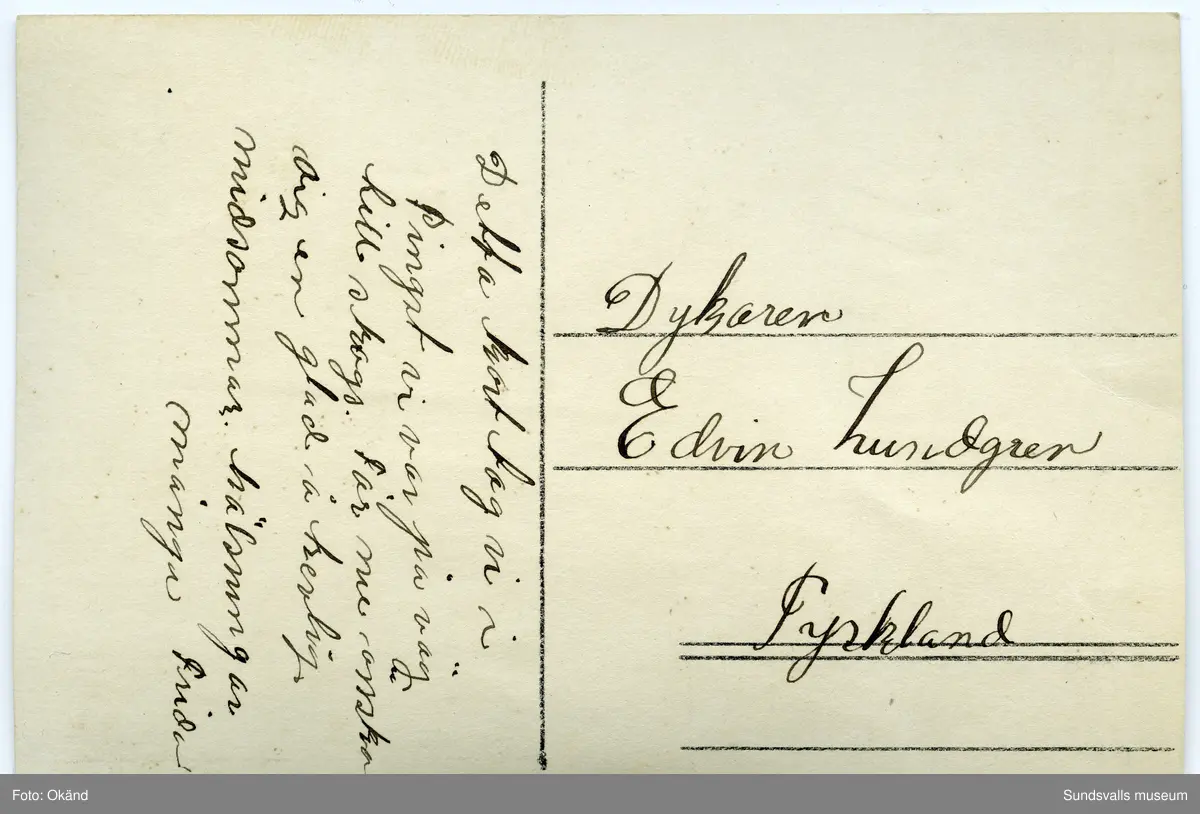 Detta kort tog vi i
Pingst vi var på väg
till skogs. Får nu önska
dig en glad å herlig
midsommar. hälsningar
många Frida
Dykaren
Edvin Lundgren
Tyskland
Foto: Okänd
Sundsvalls museum